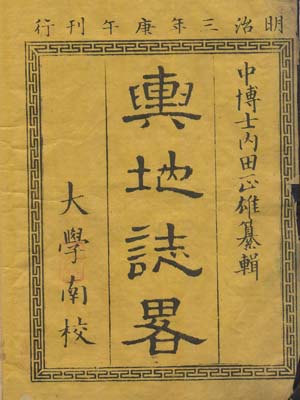 明治三年庚午刊行
中博士内田正雄纂輯
輿地誌畧
大學南校